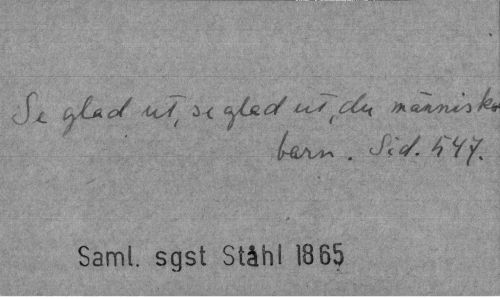 Se glad ut, se glad ut, du människo
barn. Sid. 547.
Saml. sgst Ståhl 1865